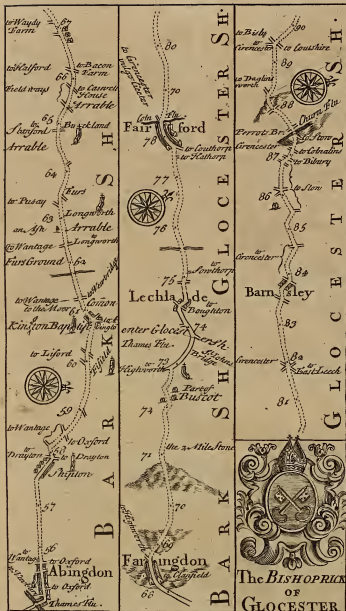 to Waydy
Farm
67
to Halford
to Bacon
Farm
66
Field ways
to Caswell
House
Arrable
65
to Stanford
Buckland
Arrable
64
Furs
to Pusay
Longworth
63
an Ash
Arrable
to Longworth
to Wantage
Furs Ground
62
to Wantage
to the Moor
61
Comon
Kingston Baptist
Fifield
to Liford
60
59
to Wantage
to Oxford
to Drayton
58
to Drayton
Shipton
57
56
to Wantage
to Oxford
Abingdon
to Oxford
Thames Flu.
BARK SH
80
to Cirencester
70
Coln Flu
Fair ford
78
to Southorn
to Hathorn
77
76
75
to Sowthorp
Lechlade
to Boughton
74
enter Glocestersh.
Thames Flu.
St Johns
Bridge
73
to Highworth
Part of
Buscot
74
the 2 Mile Stone
71
70
to Highworth
69
Farringdon
to Clanfield
68
BARK SH
GLOCESTER SH.
90
to Bisly
to Cirencester
to Coulshire
89
to Daglinsworth
88
Churn Flu
Perrots Br.
to Stow
Cirencester
to Cobnalins
87
to Bibury
86
to Slow
85
to Cirencester
84
Barnsley
83
Cirencester
82
to East Leech
81
GLOCESTER SH.
The BISHOPRICK
OF
GLOCESTER